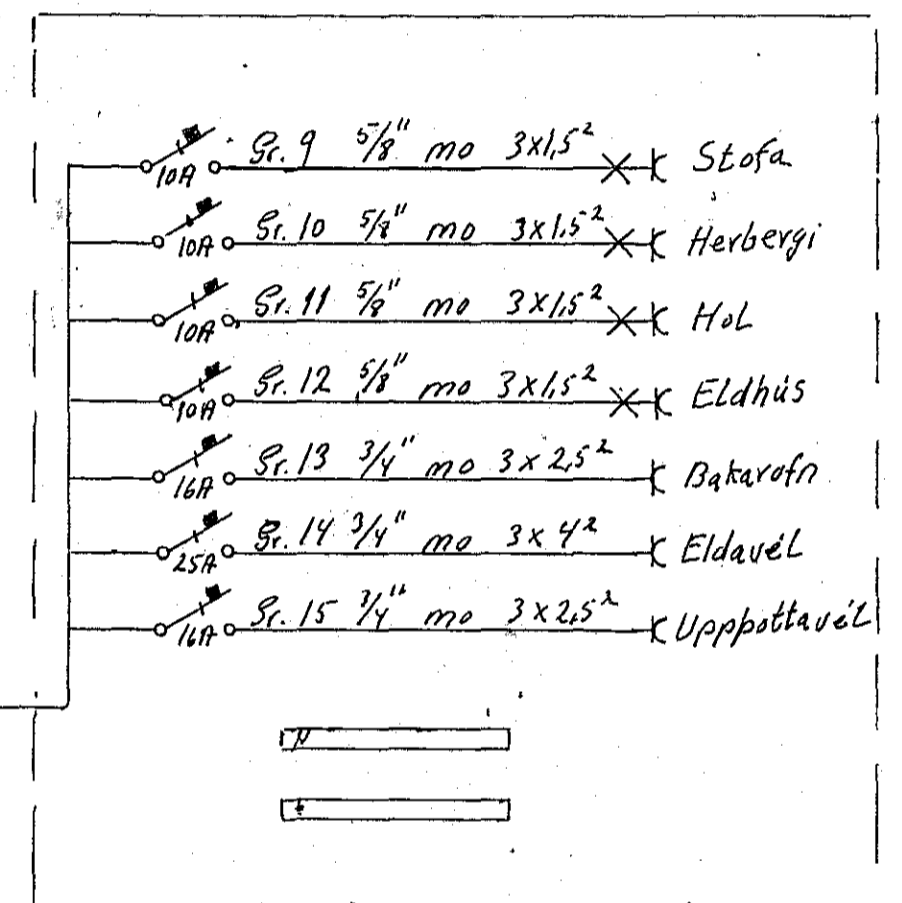 10A Gr. 9 5/8" mo 3x1,5² Stofa
10A Gr. 10 5/8" mo 3x1,5² Herbergi
10A Gr. 11 5/8" mo 3x1,5² Hol
10A Gr. 12 5/8" mo 3x1,5² Eldhús
16A Gr. 13 3/4" mo 3x2,5² Bakarofn
25A Gr. 14 3/4" mo 3x4² Eldavél
16A Gr. 15 3/4" mo 3x2,5² Uppþottavél
N